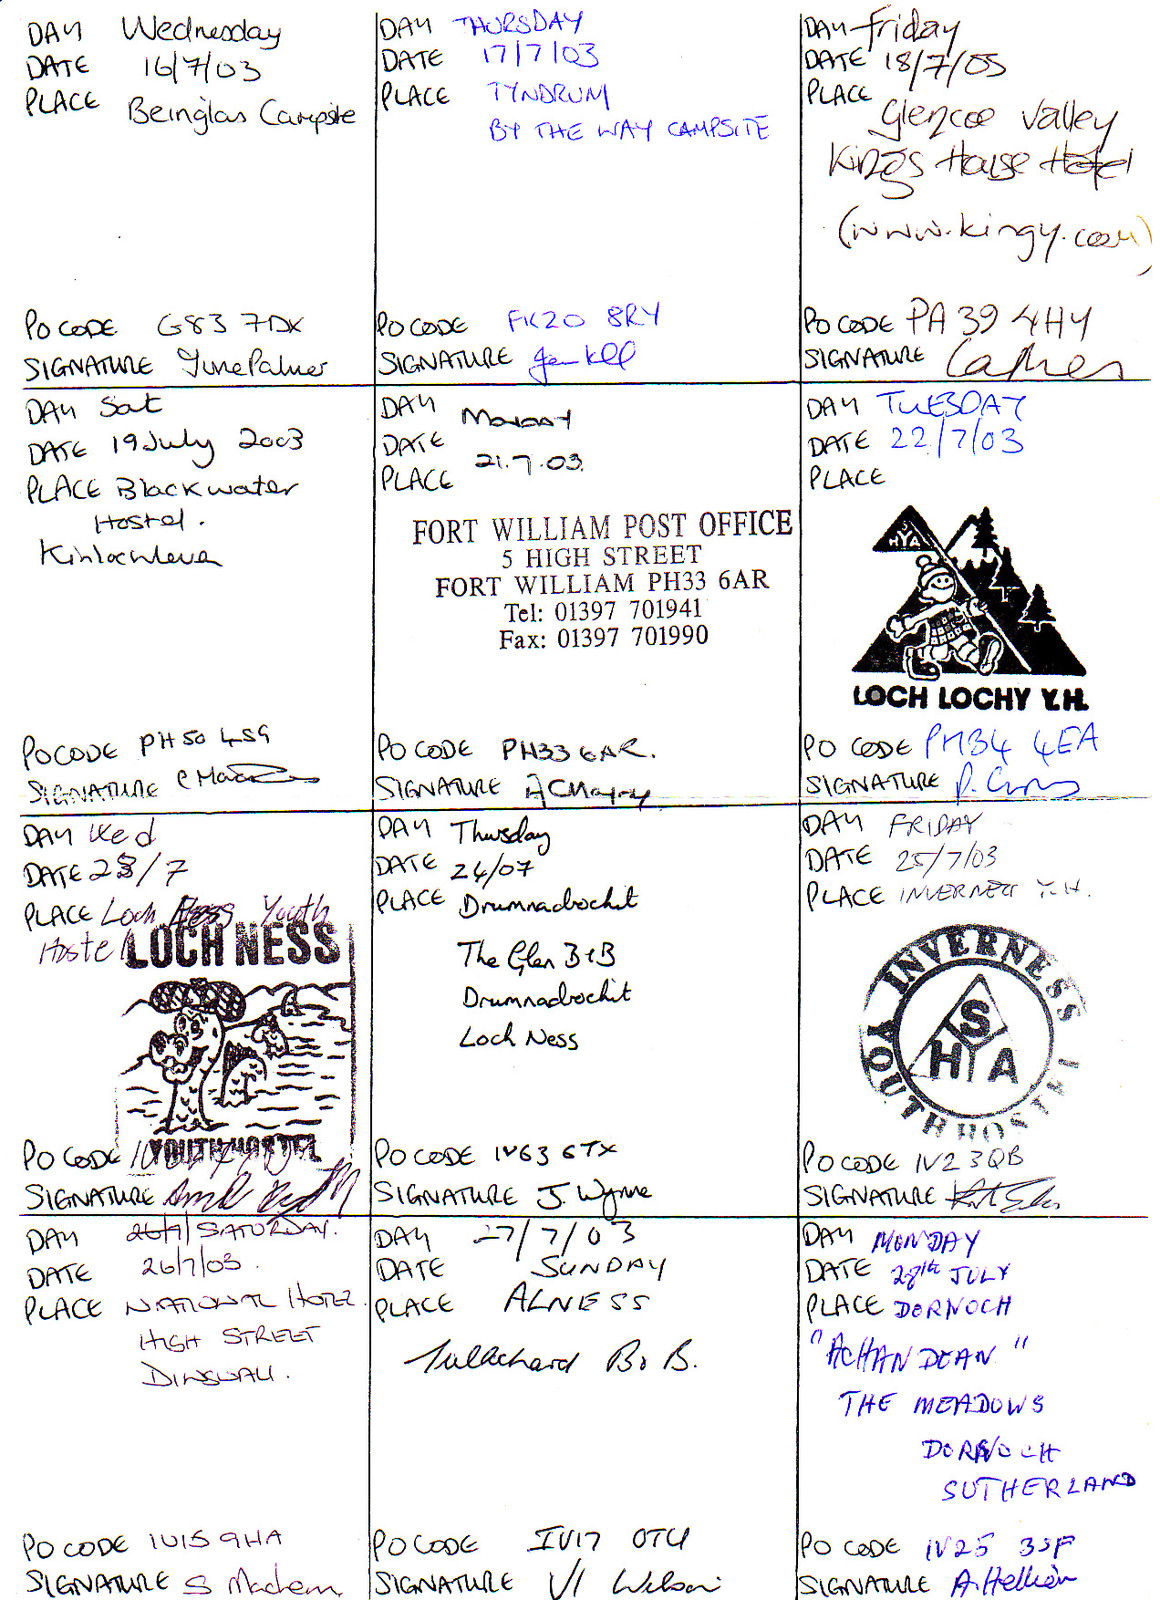 DAY Wednesday
DATE 16/7/03
PLACE Beinglas Campsite
PO CODE G83 7DX
SIGNATURE June Palmer
DAY THURSDAY
DATE 17/7/03
PLACE TYNDRUM
BY THE WAY CAMPSITE
PO CODE FK20 8RY
SIGNATURE
DAY Friday
DATE 18/7/03
PLACE Glencoe Valley
Kings House Hotel
(www.kingy.com)
PO CODE PA39 4HY
SIGNATURE
DAY Sat
DATE 19 July 2003
PLACE Blackwater
Hostel.
Kinlochleven
PO CODE PH50 4SG
SIGNATURE
DAY Monday
DATE 21.7.03
PLACE
FORT WILLIAM POST OFFICE
5 HIGH STREET
FORT WILLIAM PH33 6AR
Tel: 01397 701941
Fax: 01397 701990
PO CODE PH33 6AR.
SIGNATURE
DAY TUESDAY
DATE 22/7/03
PLACE
SYHA
LOCH LOCHY Y.H.
PO CODE PH34 4EA
SIGNATURE
DAY Wed
DATE 23/7
PLACE Loch Ness Youth
Hostel
LOCH NESS
YOUTH HOSTEL
PO CODE
SIGNATURE
DAY Thursday
DATE 24/07
PLACE Drumnadrochit
The Glen B+B
Drumnadrochit
Loch Ness
PO CODE IV63 6TX
SIGNATURE J. Wynne
DAY FRIDAY
DATE 25/7/03
PLACE INVERNESS Y.H.
INVERNESS
SYHA
YOUTH HOSTEL
PO CODE IV2 3QB
SIGNATURE
DAY 26/7/ SATURDAY.
DATE 26/7/03.
PLACE NATIONAL HOTEL
HIGH STREET
DINGWALL.
PO CODE IV15 9HA
SIGNATURE S
DAY 27/7/03
DATE SUNDAY
PLACE ALNESS
Tullochard B&B.
PO CODE IV17 0TU
SIGNATURE Wilson
DAY MONDAY
DATE 28th JULY
PLACE DORNOCH
"ACHANDEAN"
THE MEADOWS
DORNOCH
SUTHERLAND
PO CODE IV25 3SF
SIGNATURE A. Hellier